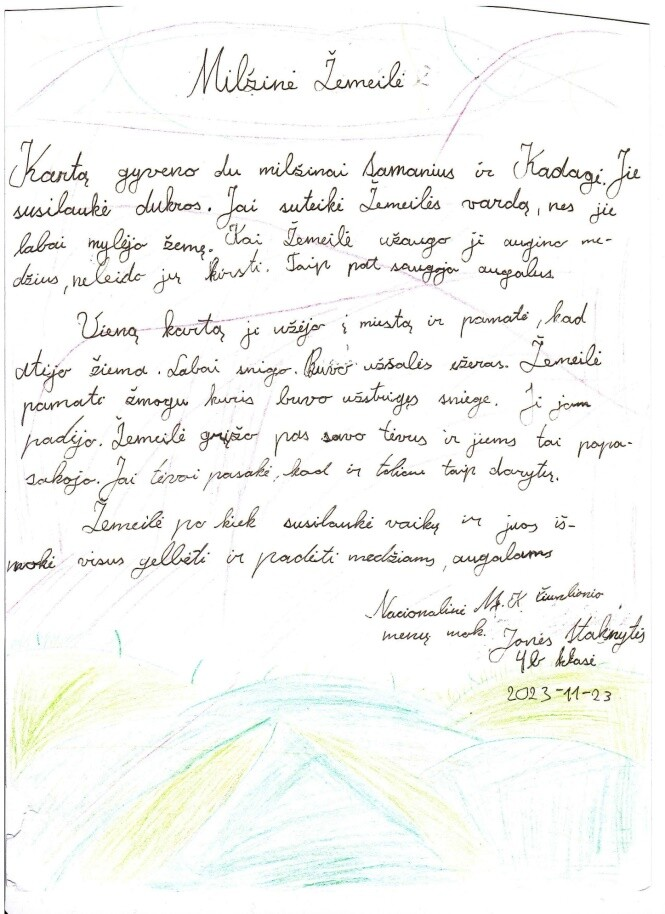 Milžinė Žemeilė 2
Kartą gyveno du milžinai Samanius ir Kadagi. Jie
susilaukė dukros. Jai suteikė Žemeilės vardą, nes jie
labai mylėjo žemę. Kai Žemeilė užaugo ji augino me-
džius, neleido jų kirsti. Taip pat saugojo augalus
Vieną kartą ji užėjo į miestą ir pamatė, kad
atėjo žiema. Labai snigo. Buvo užšalęs ežeras. Žemeilė
pamatė žmogų kuris buvo užstrigęs sniege. Ji jam
padėjo. Žemeilė grįžo pas savo tėvus ir jiems tai papa-
sakojo. Jai tėvai pasakė, kad ir toliau taip darytų.
Žemeilė po kiek susilaukė vaikų ir juos iš-
mokė visus gelbėti ir padėti medžiams, augalams
Nacionalinė M. K Čiurlionio
menų mok. Jonės Staknytės
4b klasė
2023-11-23